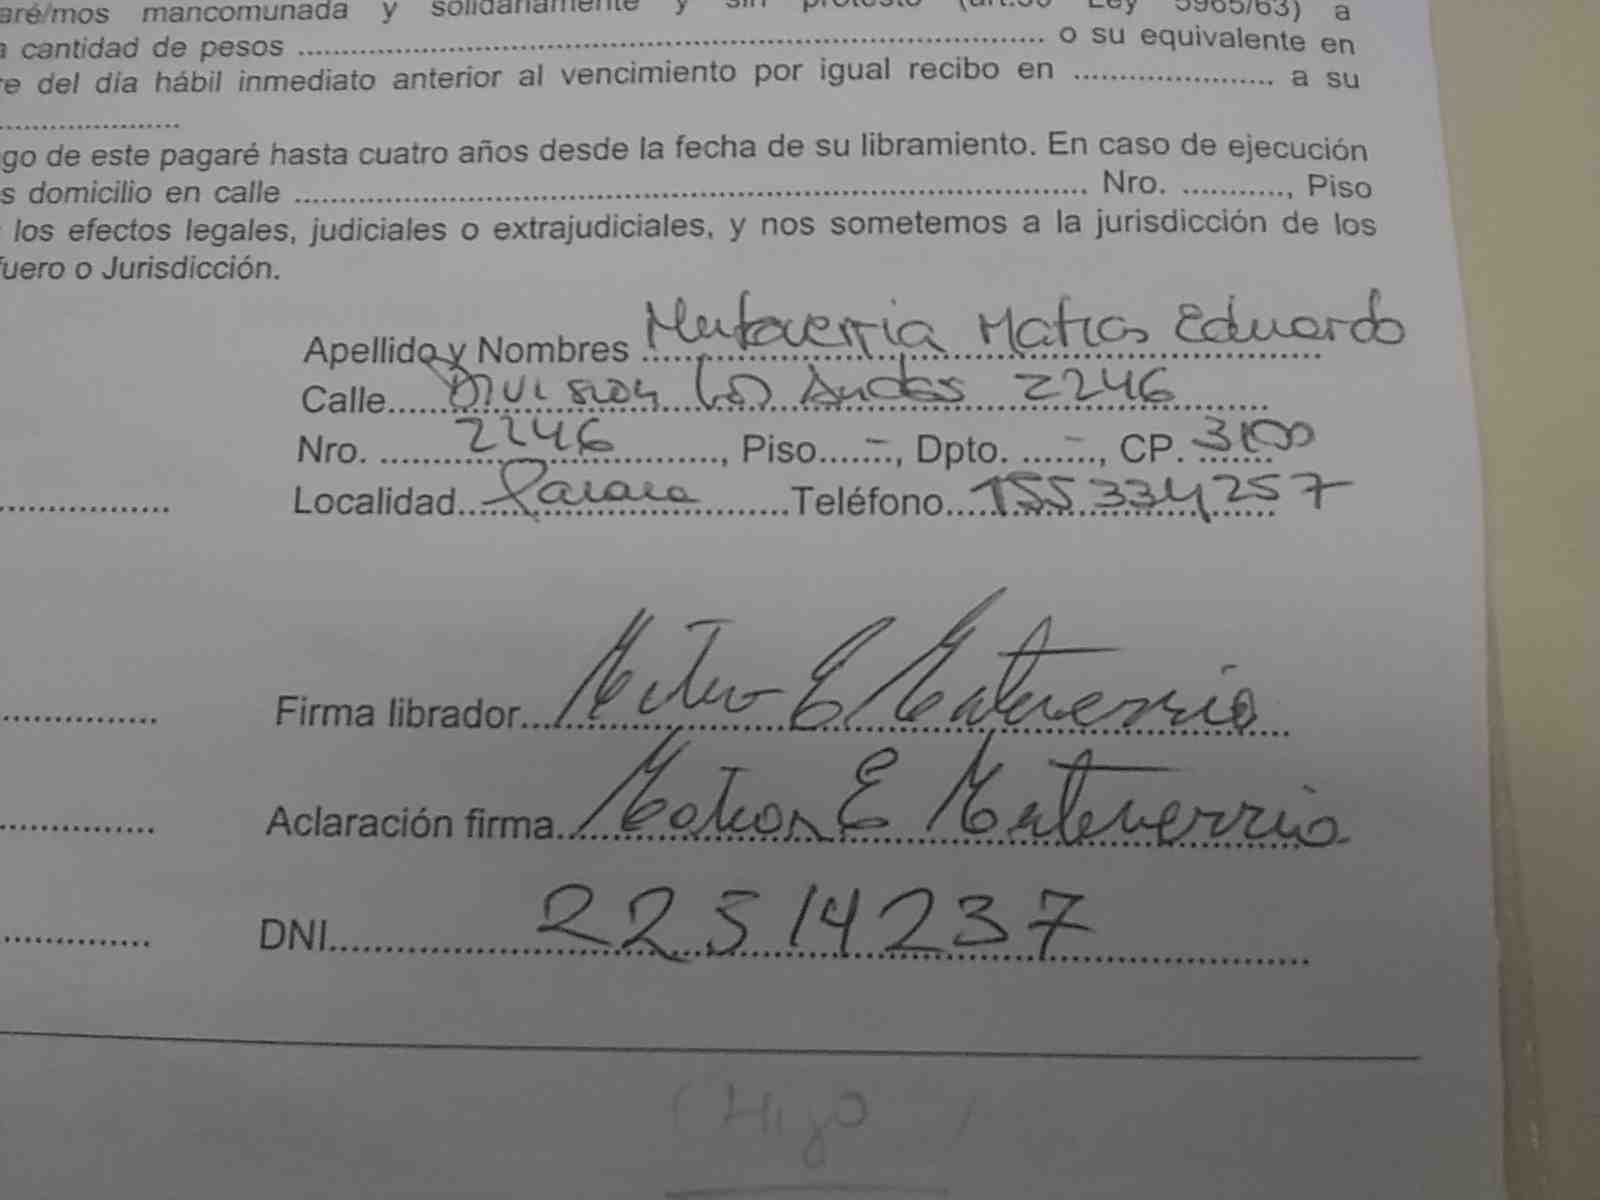 aré/mos mancomunada y solidariamente y sin protesto (art.50 Ley 5965/63) a
a cantidad de pesos .......... o su equivalente en
re del día hábil inmediato anterior al vencimiento por igual recibo en .......... a su
..........
go de este pagaré hasta cuatro años desde la fecha de su libramiento. En caso de ejecución
s domicilio en calle .......... Nro. .........., Piso
los efectos legales, judiciales o extrajudiciales, y nos sometemos a la jurisdicción de los
fuero o Jurisdicción.
Apellido y Nombres Matias Eduardo
Calle DIVISION los Andes 2246
Nro. 2246, Piso -, Dpto. -, CP. 3100
Localidad Parana Teléfono 155334257
Firma librador
Aclaración firma Matias E
DNI 22514237
(Hijo)